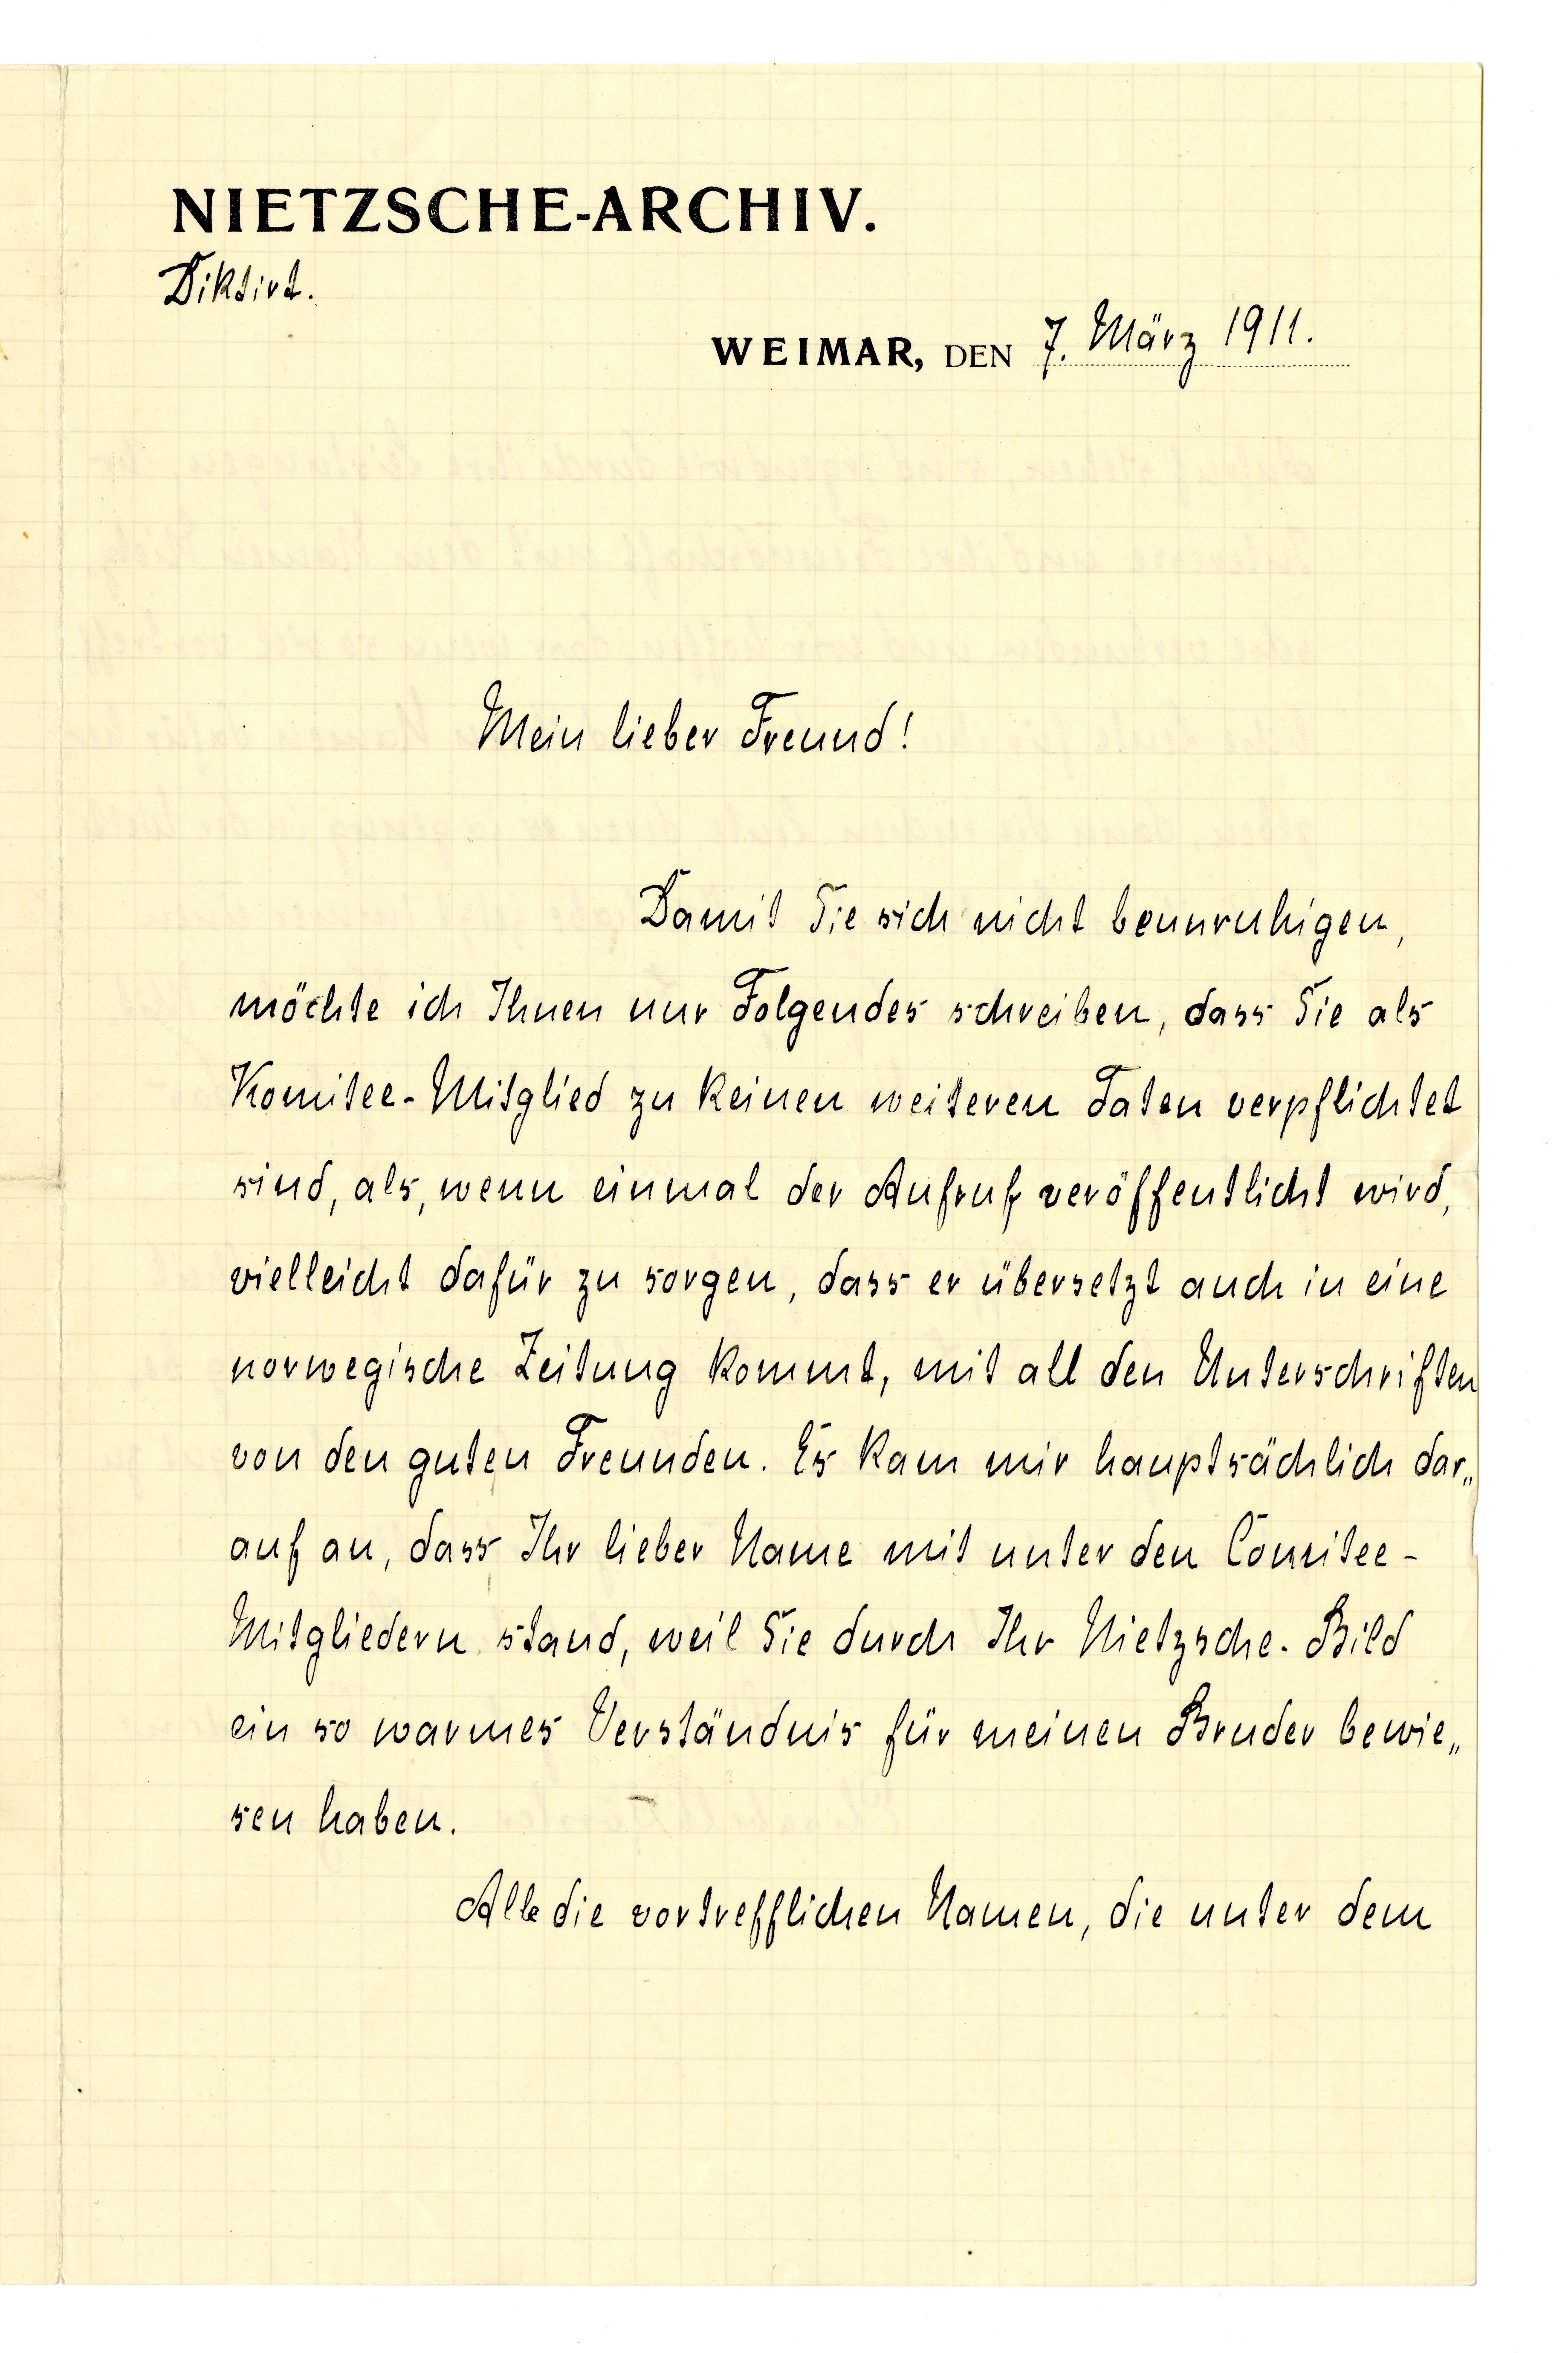 NIETZSCHE-ARCHIV.
Diktirt.
WEIMAR, DEN 7. März 1911.
Mein lieber Freund!
Damit Sie sich nicht beunruhigen,
möchte ich Ihnen nur Folgendes schreiben, dass Sie als
Komitee-Mitglied zu keinen weiteren Taten verpflichtet
sind, als, wenn einmal der Aufruf veröffentlicht wird,
vielleicht dafür zu sorgen, dass er übersetzt auch in eine
norwegische Zeitung kommt, mit all den Unterschriften
von den guten Freunden. Es kam mir hauptsächlich dar„
auf an, dass Ihr lieber Name mit unter den Comitee-
Mitgliedern stand, weil Sie durch Ihr Nietzsche-Bild
ein so warmes Verständnis für meinen Bruder bewie„
sen haben.
Alle die vortrefflichen Namen, die unter dem